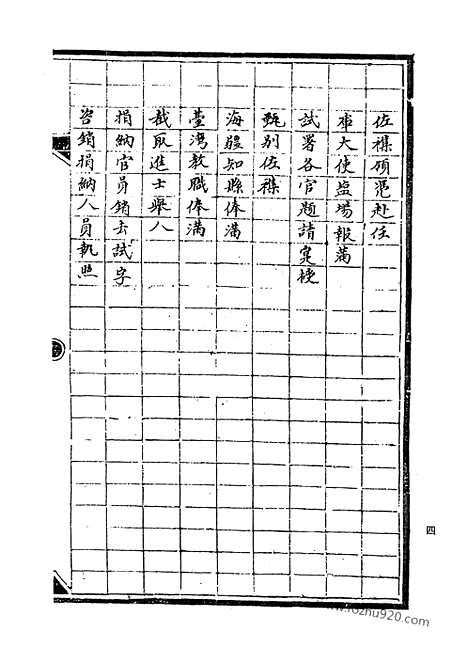 佐襍領憑赴任
庫大使塩場報滿
試署各官題請寔授
甄別佐襍
海疆知縣俸滿
臺灣教職俸滿
裁取進士舉人
捐納官員銷去試字
咨銷捐納人員執照
四
www.fozhu920.com